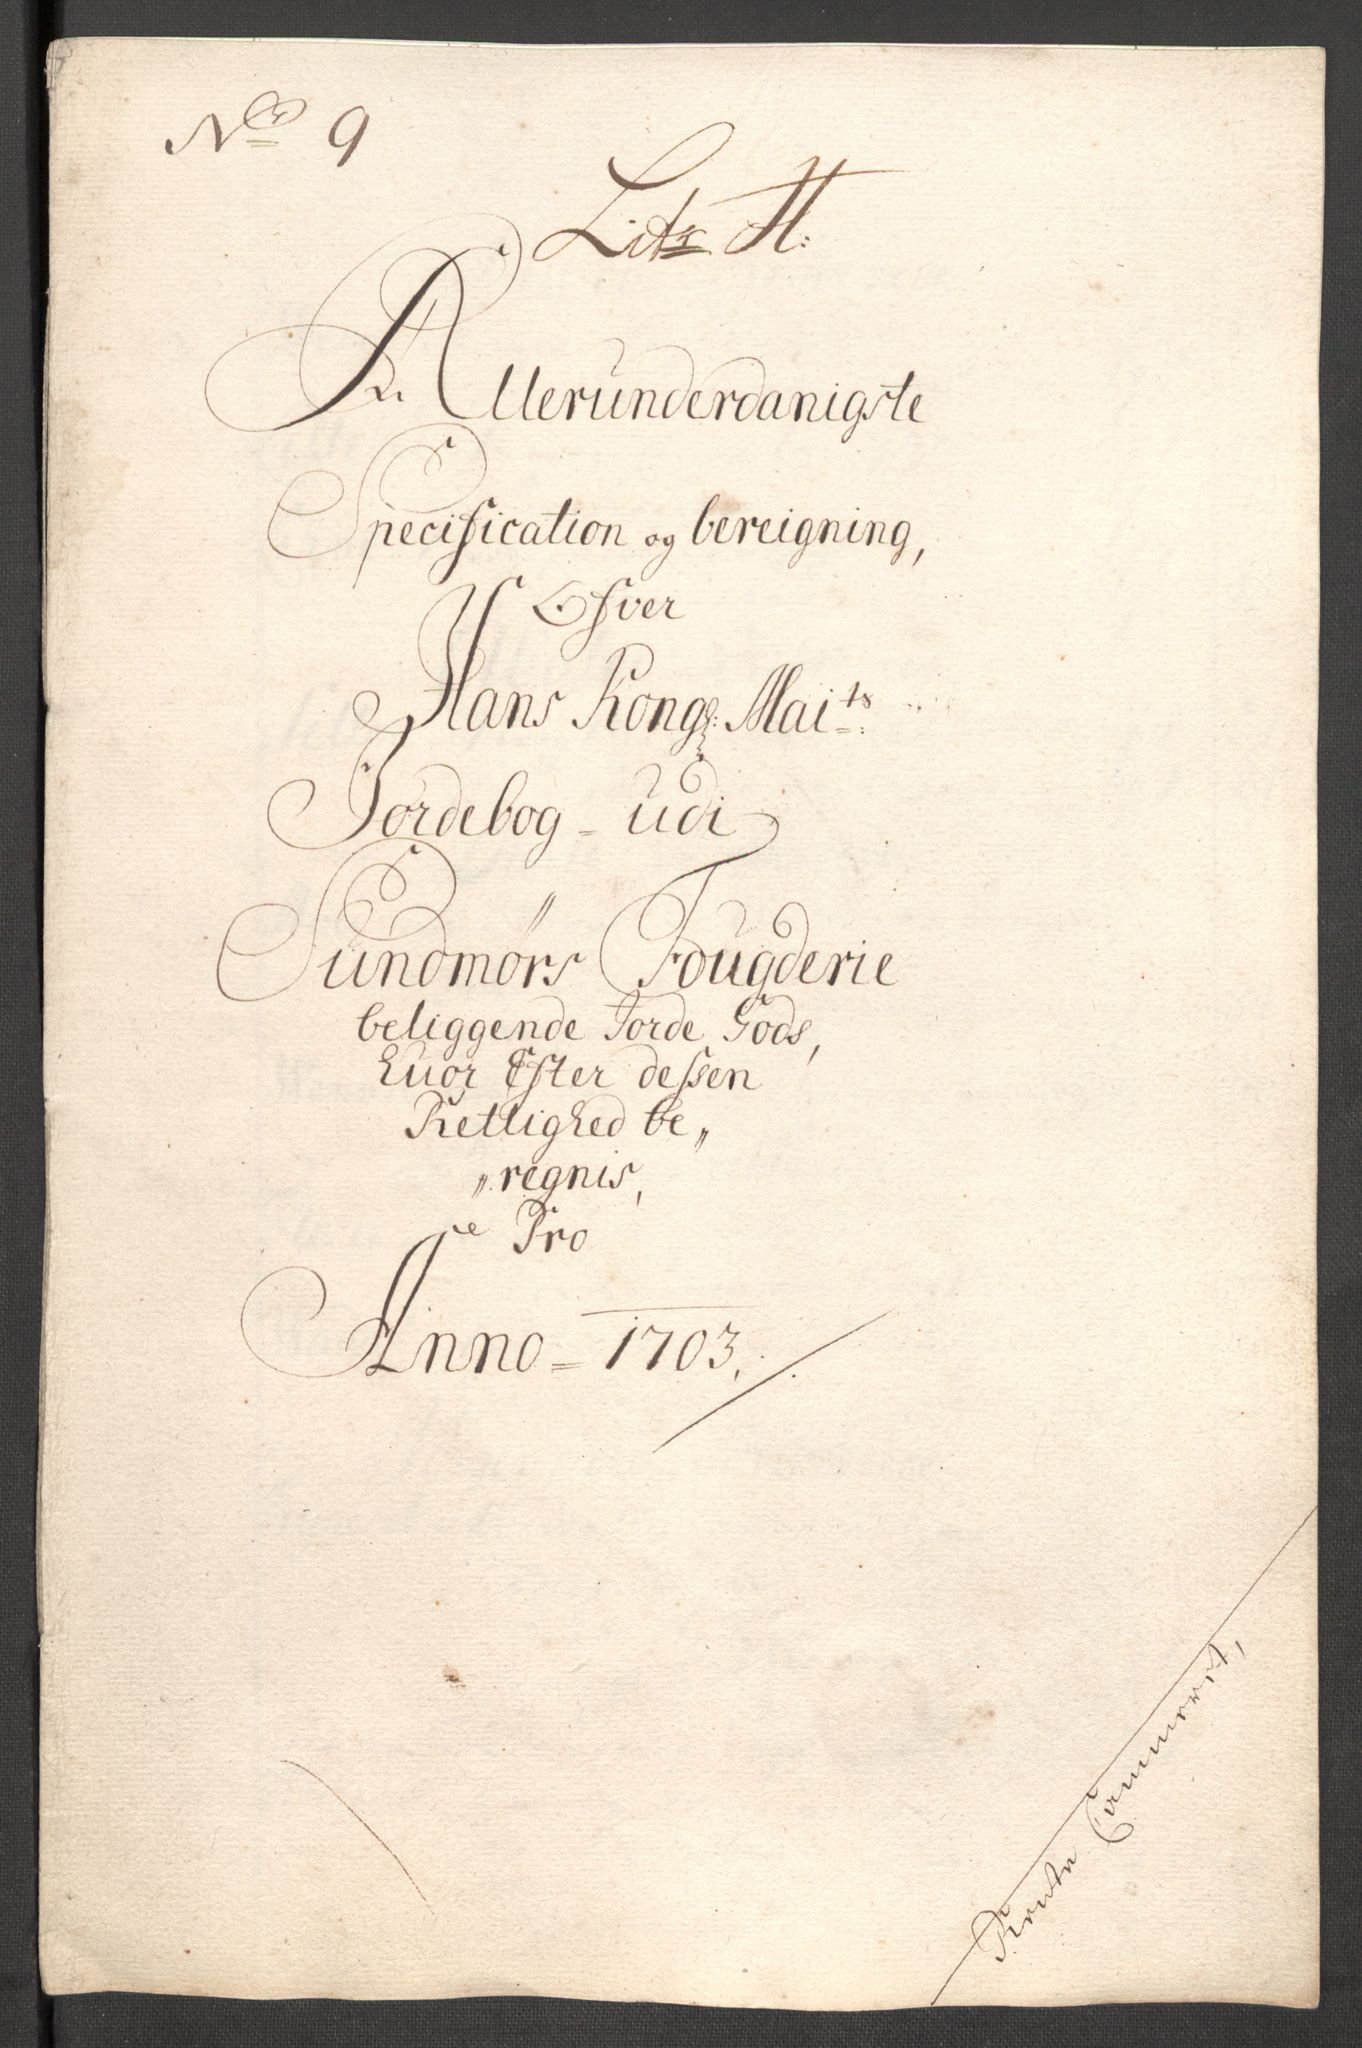 No 9
Litr H:
Allerunderdanigste
Specification og bereigning,
Ofver
Hans Kongl: Maits:
Jordebog - udi
Sundmørs Fougderie
beliggende Jorde Gods,
huor Efter dessen
Rettighed be„
„regnis,
Pro
Anno = 1703,
Rente Cammeret,